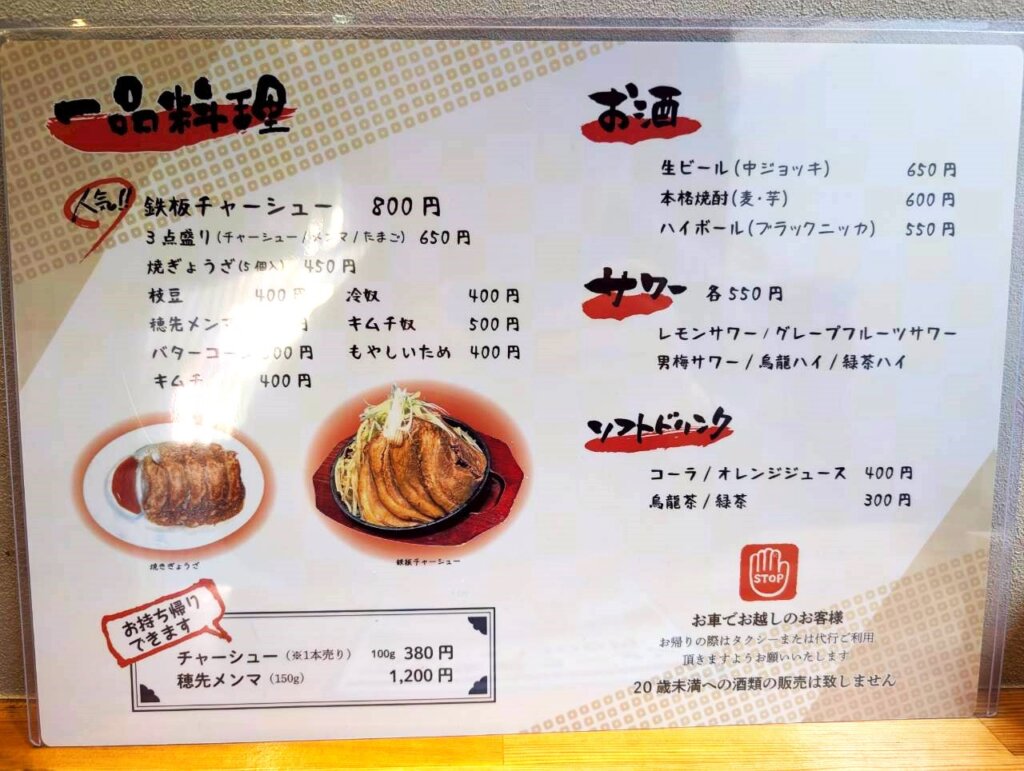 一品料理
人気!!
鉄板チャーシュー 800円
3点盛り(チャーシュー/メンマ/たまご) 650円
焼ぎょうざ(5個入) 450円
枝豆 400円 冷奴 400円
穂先メンマ 円 キムチ奴 500円
バターコーン 円 もやしいため 400円
キムチ 400円
焼きぎょうざ
鉄板チャーシュー
お持ち帰り
できます
チャーシュー(※1本売り) 100g 380円
穂先メンマ(150g) 1,200円
お酒
生ビール(中ジョッキ) 650円
本格焼酎(麦・芋) 600円
ハイボール(ブラックニッカ) 550円
サワー 各550円
レモンサワー/グレープフルーツサワー
男梅サワー/烏龍ハイ/緑茶ハイ
ソフトドリンク
コーラ/オレンジジュース 400円
烏龍茶/緑茶 300円
STOP
お車でお越しのお客様
お帰りの際はタクシーまたは代行ご利用
頂きますようお願いいたします
20歳未満への酒類の販売は致しません